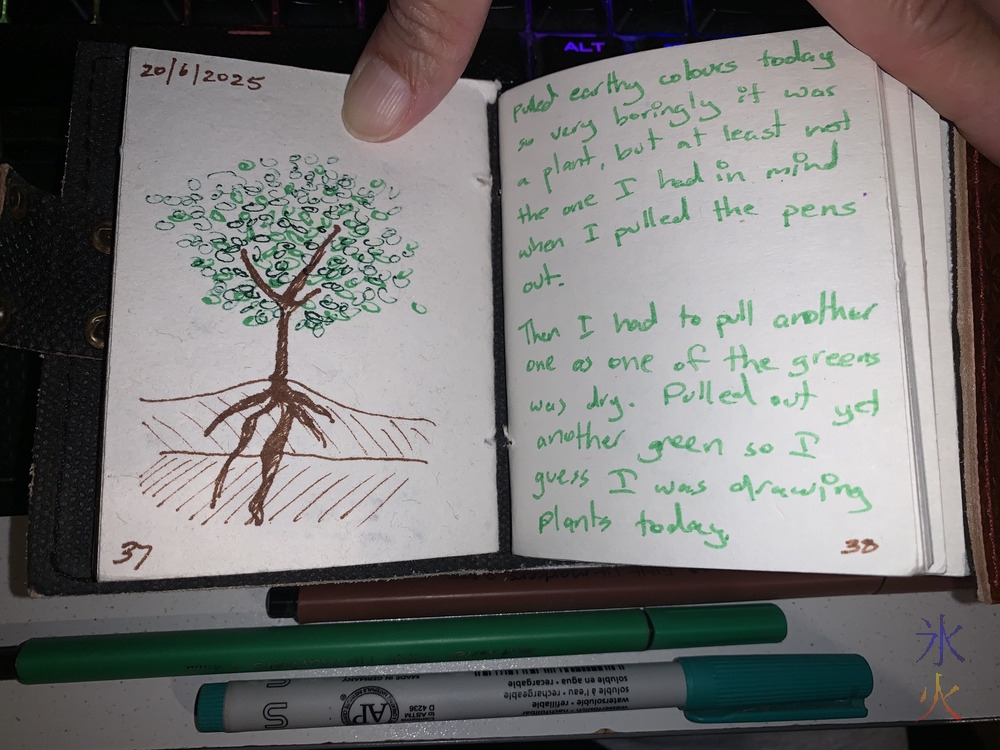 20/6/2025
37
pulled earthy colours today
so very boringly it was
a plant, but at least not
the one I had in mind
when I pulled the pens
out.
Then I had to pull another
one as one of the greens
was dry. Pulled out yet
another green so I
guess I was drawing
plants today.
38
ALT
MADE IN GERMANY
AP
D 4236
soluble en agua • recargable
soluble à l'eau • rechargeable
watersoluble • refillable
氷
火